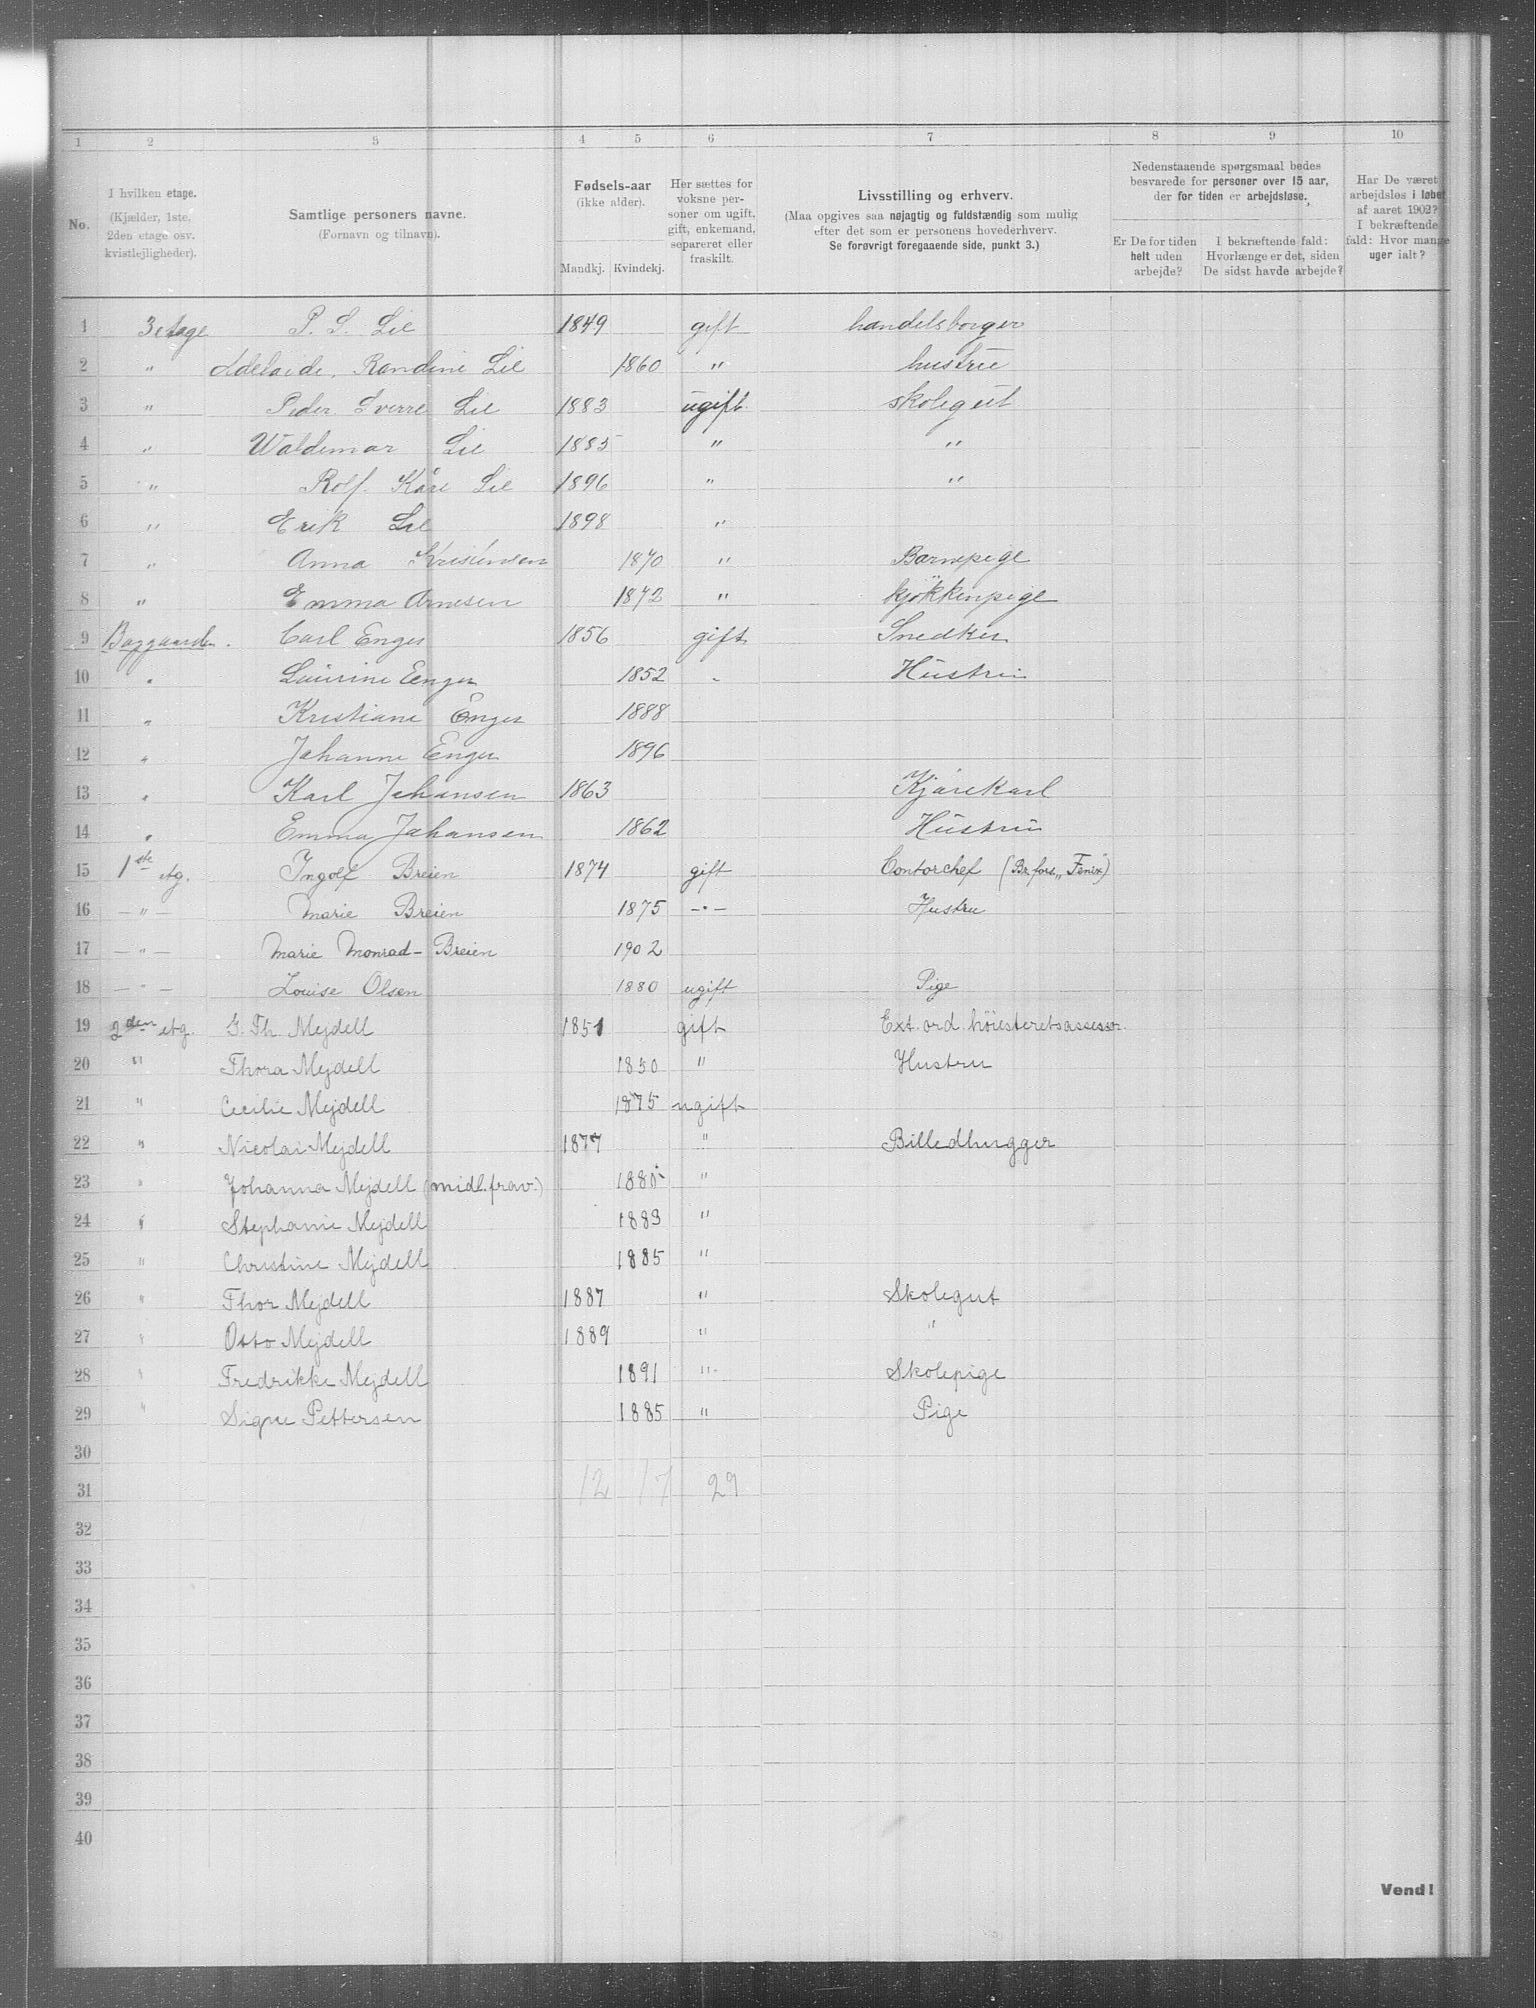 1 2 3 4 5 6 7 8 9 10
No.
I hvilken etage.
(Kjælder, 1ste,
2den etage osv.
kvistlejligheder).
Samtlige personers navne.
(Fornavn og tilnavn).
Fødsels-aar
(ikke alder).
Mandkj. Kvindekj.
Her sættes for
voksne per-
soner om ugift,
gift, enkemand,
separeret eller
fraskilt.
Livsstilling og erhverv.
(Maa opgives saa nøjagtig og fuldstændig som mulig
efter det som er personens hovederhverv.
Se forøvrigt foregaaende side, punkt 3.)
Nedenstaaende spørgsmaal bedes
besvarede for personer over 15 aar,
der for tiden er arbejdsløse.
Er De for tiden
helt uden
arbejde?
I bekræftende fald:
Hvorlænge er det, siden
De sidst havde arbejde?
Har De været
arbejdsløs i løbet
af aaret 1902?
I bekræftende
fald: Hvor mange
uger ialt?
1 3 etage P. S. Lie 1849 gift handelsborger
2 " Adelaide Randine Lie 1860 " hustrue
3 " Peder Sverre Lie 1883 ugift. skolegut
4 " Waldemar Lie 1885 " "
5 " Rolf Kåre Lie 1896 " "
6 " Erik Lie 1898 "
7 " Anna Kristensen 1870 " Barnepige
8 " Emma Arnesen 1872 " kjøkkenpige
9 Baggaarden. Carl Enger 1856 gift Snedker
10 " Laurine Eenger 1852 " Hustru
11 " Kristiane Enger 1888
12 " Johanne Enger 1896
13 " Karl Johansen 1863 Kjørekarl
14 " Emma Johansen 1862 Hustru
15 1ste etg. Ingolf Breien 1874 gift Contorchef (Br. fors. "Fenix")
16 — " — Marie Breien 1875 — " — Hustru
17 — " — Marie Monrad-Breien 1902
18 — " — Louise Olsen 1880 ugift Pige
19 2den etg. G. Th. Mejdell 1851 gift Ext. ord. høiesteretsassessor
20 " Thora Mejdell 1850 " Hustru
21 " Cecilie Mejdell 1875 ugift
22 " Nicolai Mejdell 1877 " Billedhugger
23 " Johanna Mejdell (midl. frav.) 1880 "
24 " Stephanie Mejdell 1883 "
25 " Christine Mejdell 1885 "
26 " Thor Mejdell 1887 " Skolegut
27 " Otto Mejdell 1889 " "
28 " Fredrikke Mejdell 1891 " Skolepige
29 " Signe Pettersen 1885 " Pige
30
31 12 17 29
32
33
34
35
36
37
38
39
40
Vend!